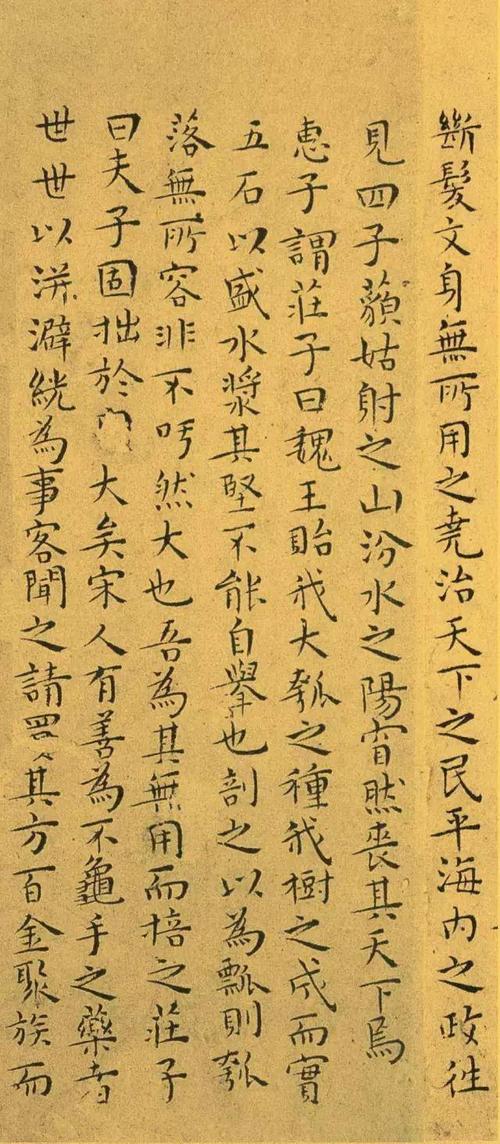 斷髮文身無所用之堯治天下之民平海内之政徃
見四子藐姑射之山汾水之陽窅然喪其天下焉
惠子謂莊子曰魏王貽我大瓠之種我樹之成而實
五石以盛水漿其堅不能自舉也剖之以為瓢則瓠
落無所容非不呺然大也吾為其無用而掊之莊子
曰夫子固拙於大矣宋人有善為不龜手之藥者
世世以洴澼絖為事客聞之請其方百金聚族而